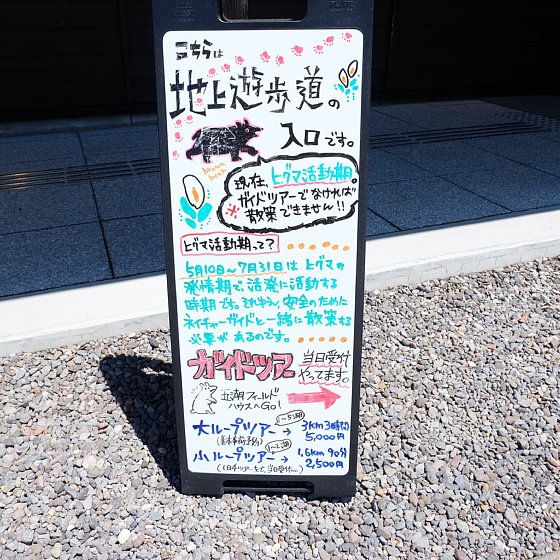 こちらは
地上遊歩道の
入口です。
brown bear
現在、ヒグマ活動期。
ガイドツアーでなければ
※散策できません!!
ヒグマ活動期って?
5月10日~7月31日は ヒグマの
発情期で、活発に活動する
時期です。そのため、安全のために
ネイチャーガイドと一緒に散策する
必要があるのです。
ガイドツアー 当日受付
やってます。
五湖フィールド
ハウスへGo!
1~5湖
大ループツアー → 3km 3時間
(基本事前予約) 5,000円
1~2湖
小ループツアー → 1.6km 90分
2,500円